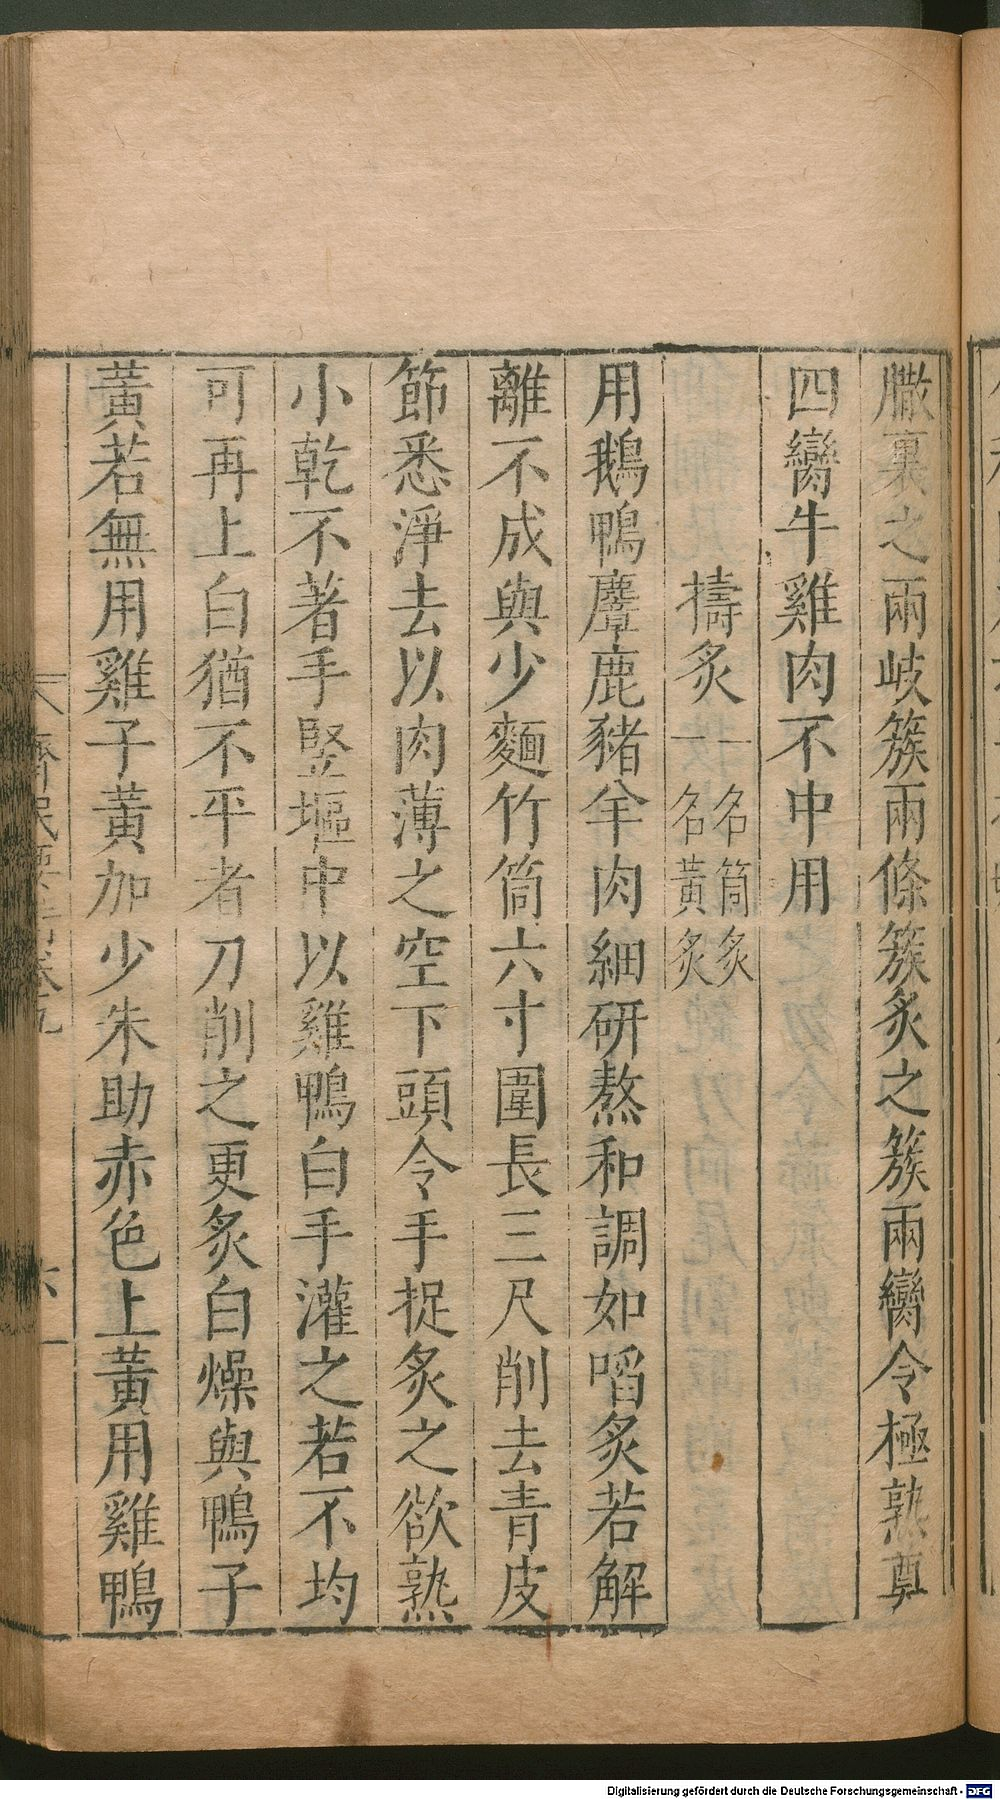 䐑裏之兩歧簇兩條簇炙之簇兩臠令極熟奠
四臠牛雞肉不中用
擣炙一名筒炙一名黃炙
用鵝鴨麞鹿豬羊肉細研熬和調如㗖炙若解
離不成與少麵竹筒六寸圍長三尺削去青皮
節悉淨去以肉薄之空下頭令手捉炙之欲熟
小乾不著手竪塸中以雞鴨白手灌之若不均
可再上白猶不平者刀削之更炙白燥與鴨子
黃若無用雞子黃加少朱助赤色上黃用雞鴨
齊民要術卷九
六
Digitalisierung gefördert durch die Deutsche Forschungsgemeinschaft - DFG